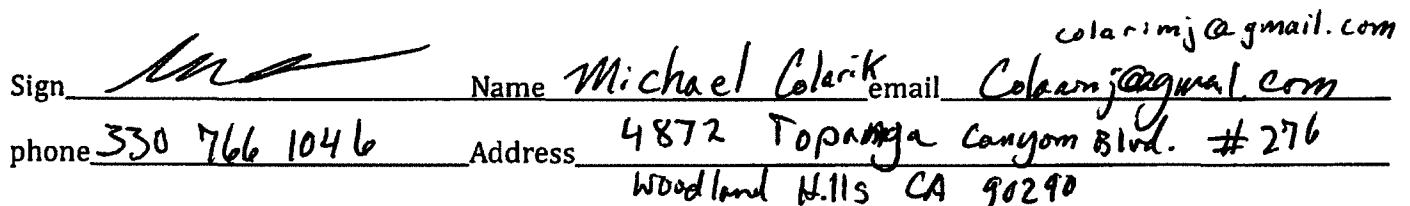 colarimj@gmail.com
Sign Name Michael Colarik email
phone 330 766 1046 Address 4872 Topanga Canyon Blvd. #276
Woodland Hills CA 90290